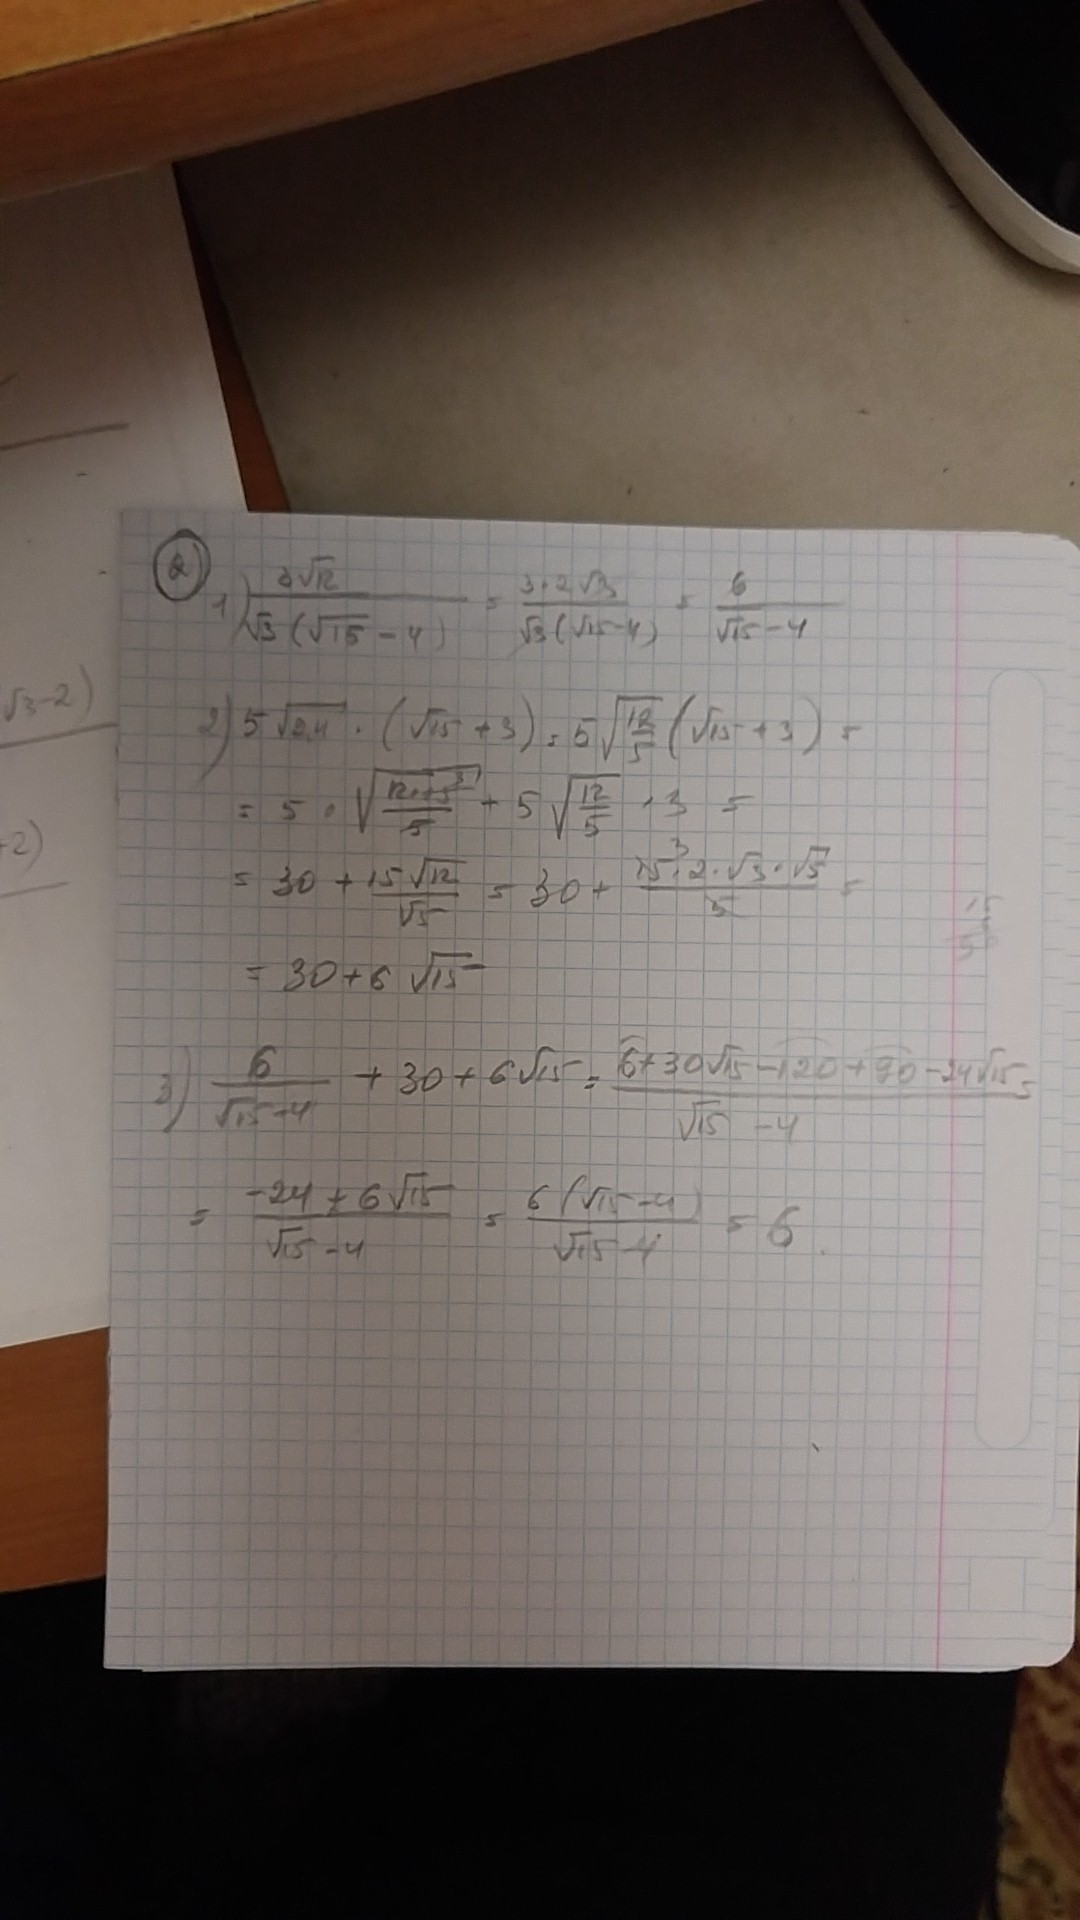 ②
1) 3√12 / √3(√15 - 4) = 3·2√3 / √3(√15-4) = 6 / √15-4
2) 5√2,4 · (√15 + 3) = 5√12/5 (√15 + 3) =
= 5 · √12·15³/5 + 5√12/5 · 3 =
= 30 + 15√12 / √5 = 30 + 15³·2·√3·√5 / 5 =
= 30+6√15
3) 6 / √15-4 + 30 + 6√15 = 6+30√15-120+90-24√15 / √15-4 =
= -24+6√15 / √15-4 = 6(√15-4) / √15-4 = 6.
√3-2)
+2)